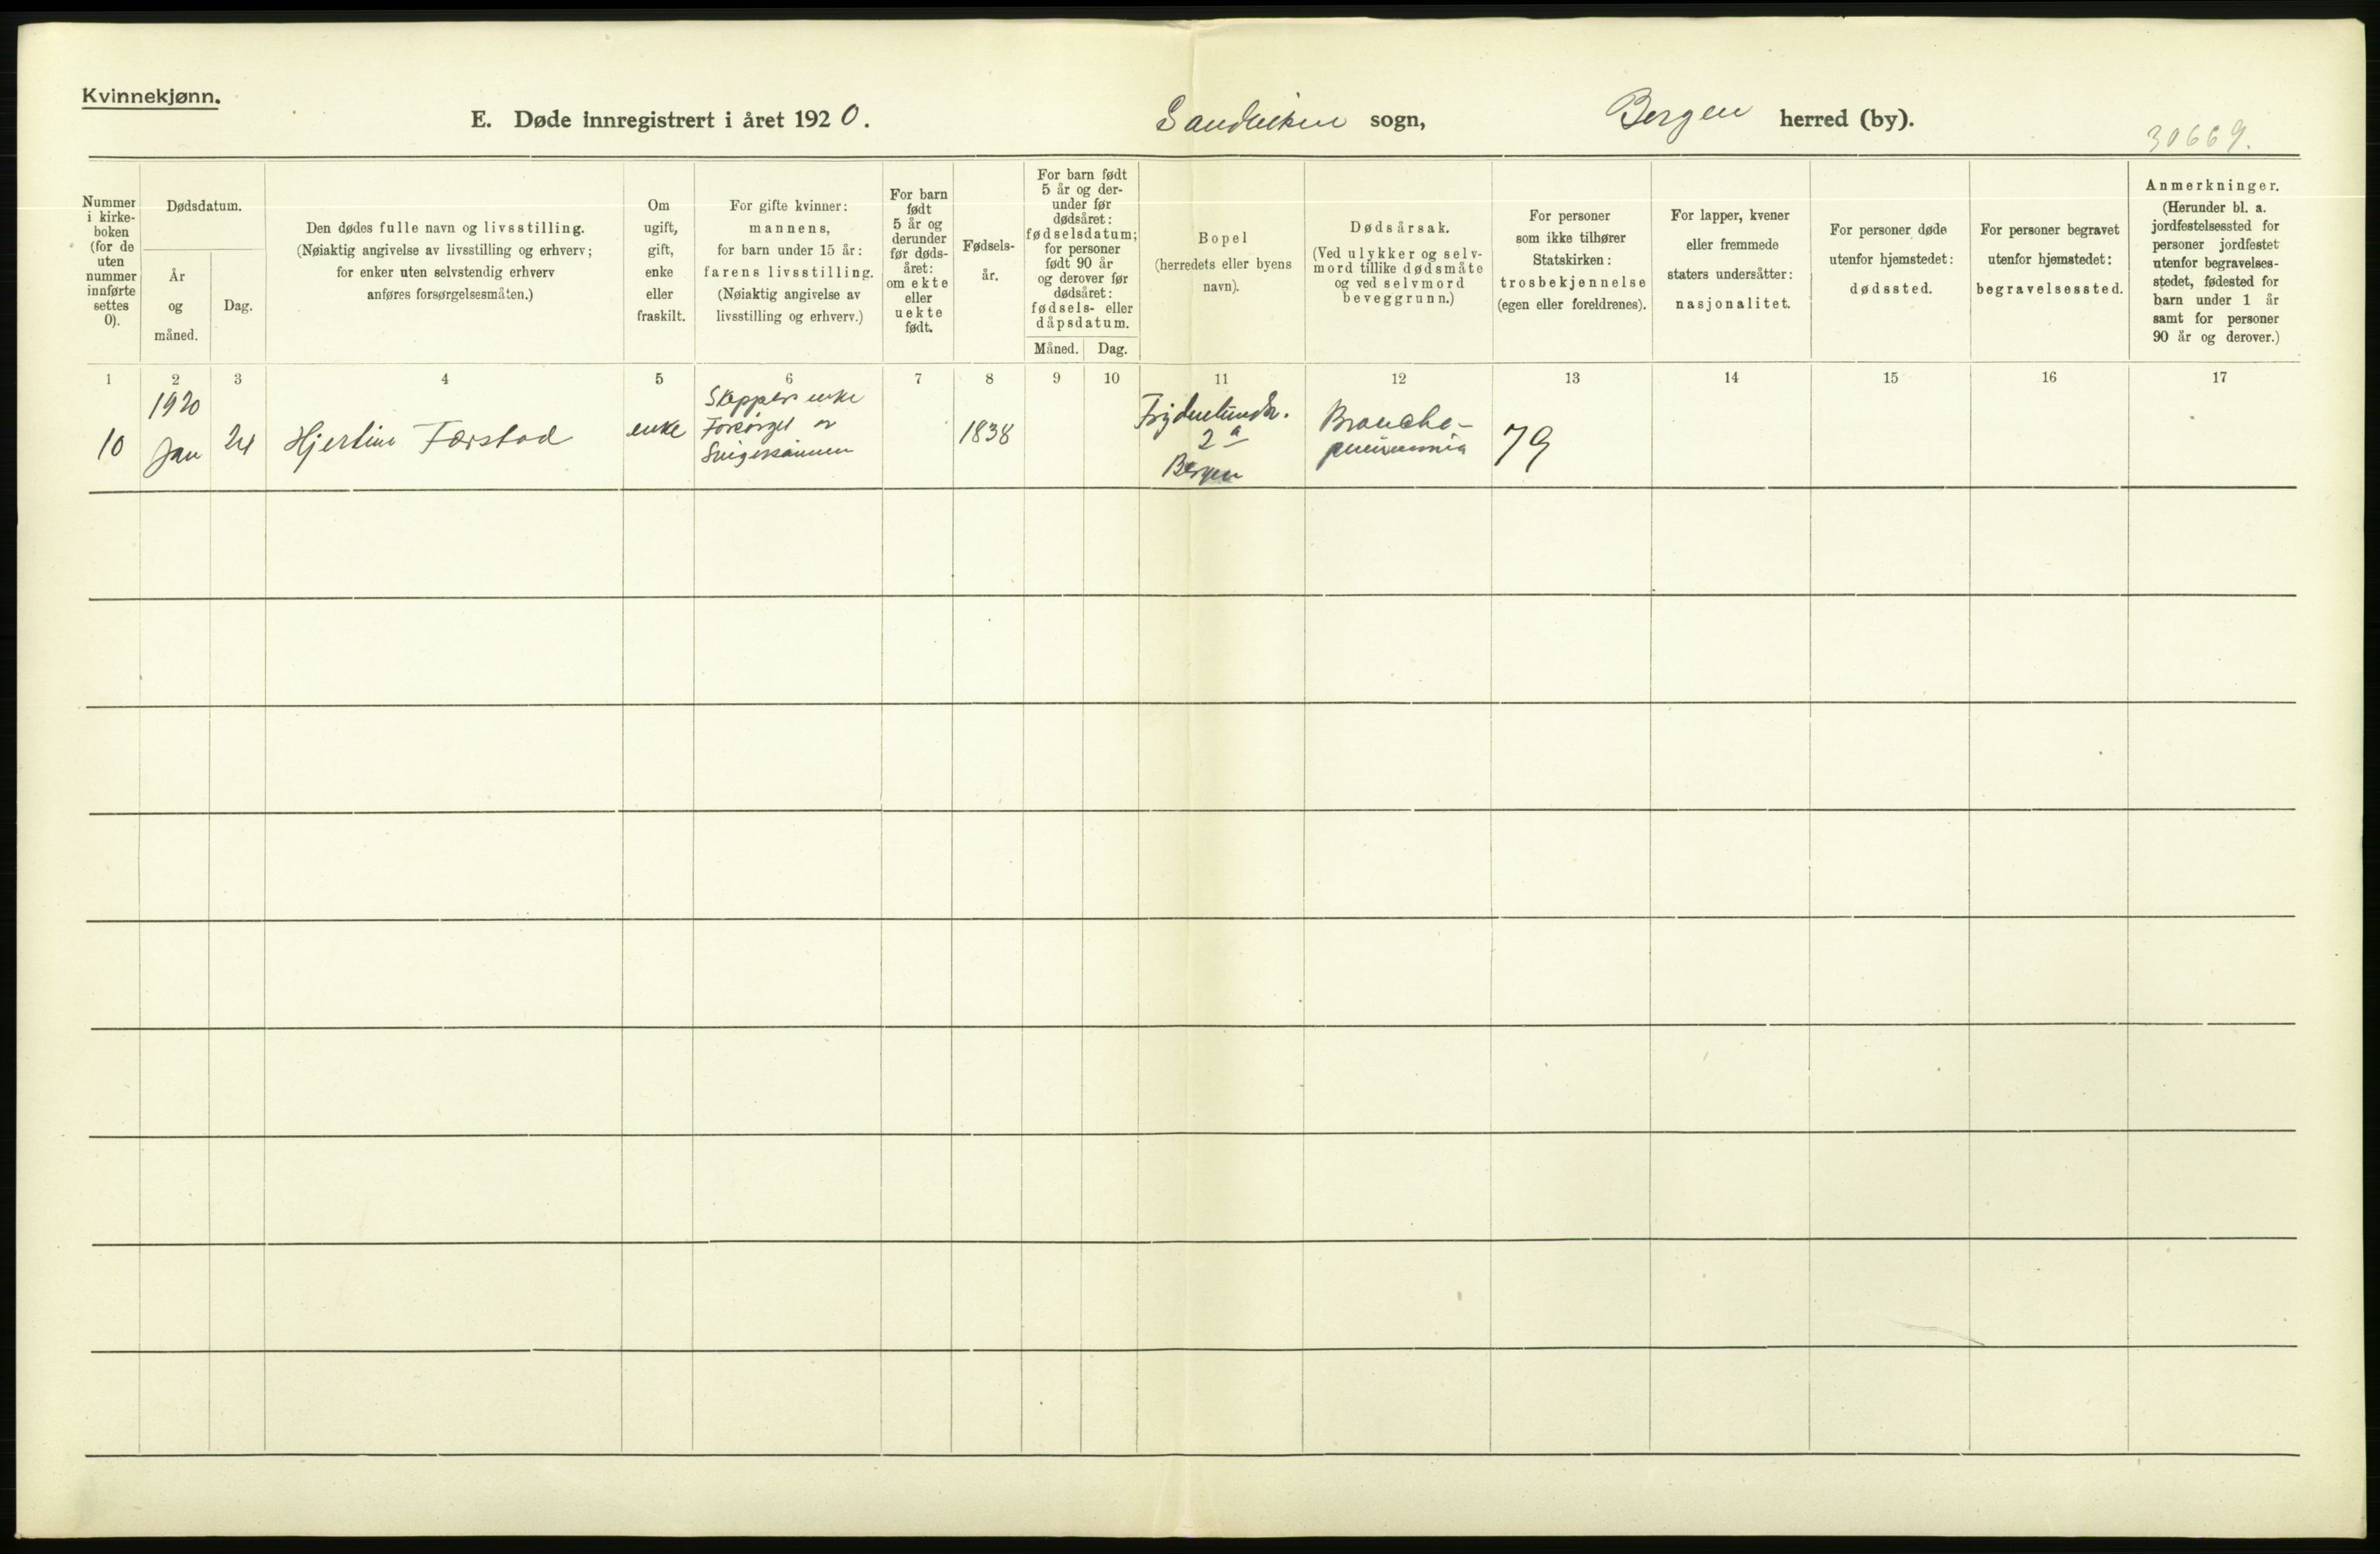 Kvinnekjønn.
E. Døde innregistrert i året 1920. Sandviken sogn, Bergen herred (by).
30669.
Nummer i kirke-boken (for de uten nummer innførte settes 0).
Dødsdatum.
År og måned.
Dag.
Den dødes fulle navn og livsstilling.
(Nøiaktig angivelse av livsstilling og erhverv;
for enker uten selvstendig erhverv
anføres forsørgelsesmåten.)
Om
ugift,
gift,
enke
eller
fraskilt.
For gifte kvinner:
mannens,
for barn under 15 år:
farens livsstilling.
(Nøiaktig angivelse av
livsstilling og erhverv.)
For barn
født
5 år og
derunder
før døds-
året:
om ekte
eller
uekte
født.
Fødsels-
år.
For barn født
5 år og der-
under før
dødsåret:
fødselsdatum;
for personer
født 90 år
og derover før
dødsåret:
fødsels- eller
dåpsdatum.
Måned. Dag.
Bopel
(herredets eller byens
navn).
Dødsårsak.
(Ved ulykker og selv-
mord tillike dødsmåte
og ved selvmord
beveggrunn.)
For personer
som ikke tilhører
Statskirken:
trosbekjennelse
(egen eller foreldrenes).
For lapper, kvener
eller fremmede
staters undersåtter:
nasjonalitet.
For personer døde
utenfor hjemstedet:
dødssted.
For personer begravet
utenfor hjemstedet:
begravelsessted.
Anmerkninger.
(Herunder bl. a.
jordfestelsessted for
personer jordfestet
utenfor begravelses-
stedet, fødested for
barn under 1 år
samt for personer
90 år og derover.)
1 2 3 4 5 6 7 8 9 10 11 12 13 14 15 16 17
1920
10 Jan 24 Hjertine Færstad enke
Skippers enke
Forsørget av
Svigersønnen
1838
2a
Bergen
Broncho-
pneumonia
79